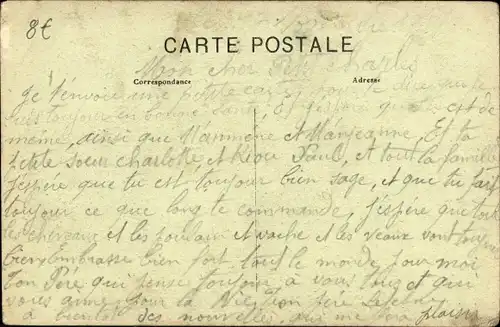 8€
CARTE POSTALE
Mon cher Petit Charles
Correspondance Adresse
Je t'envoie une petite pour te dire que je
suis toujour en bonne santé et j'espère que est de
même, ainsi que Manmére et Marjeanne, Et ta
petite soeur charlotte et Paul, et tout la famille
j'espère que tu est toujour bien sage, et que tu fait
toujour ce que long te commande, j'espère que tout
les chevaux et les poulain et vache et les veaux vont toujour
bien Embrasse bien fort tout le monde pour moi
Ton Père qui pense toujour a vous tout et qui
vous aime pour la vie ton père
a bientot des nouvelles, qui me fera plaisir